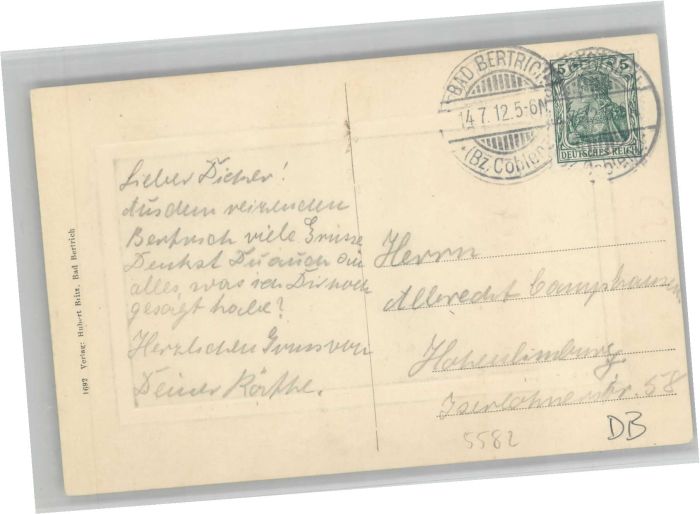 BAD BERTRICH
14.7.12.5-6N.
(Bz. Coblenz)
5 5
DEUTSCHES REICH
Lieber Dicker!
Aus dem reizenden
Bertrich viele Grüsse
Denkst Du auch an
alles, was ich Dir
gesagt habe?
Herzlichen Gruss von
Deiner Käthe.
Herrn
Albrecht Camphausen
Hohenlimburg
Iserlohnerstr. 58
5582
DB
1692 Verlag: Hubert Britz, Bad Bertrich